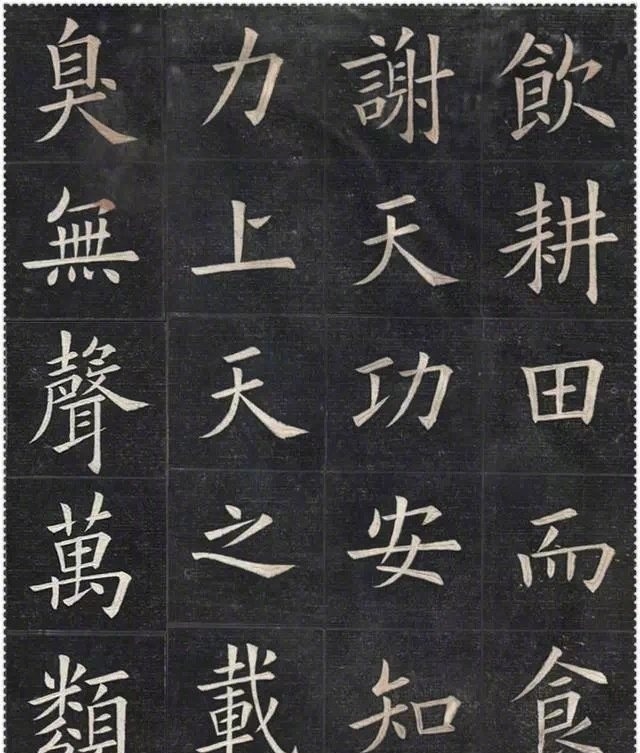 飲耕田而食
謝天功安知
力上天之載
臭無聲萬類